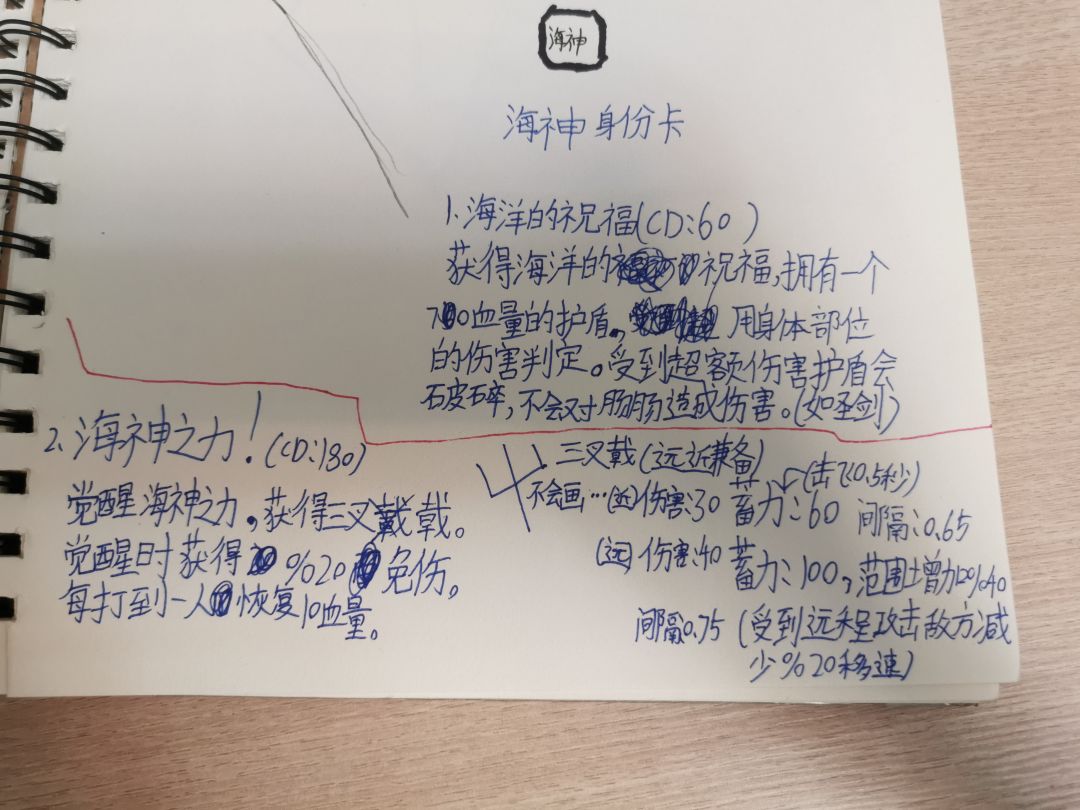 海神
海神身份卡
1.海洋的祝福(CD:60)
获得海洋的祝福,拥有一个
70血量的护盾。用身体部位
的伤害判定。受到超额伤害护盾会
破碎,不会对肠肠造成伤害。(如圣剑)
2.海神之力!(CD:180)
觉醒海神之力,获得三叉戴戟。
觉醒时获得%20免伤。
每打到一人恢复10血量。
三叉戟(远近兼备)
不会画…(近)伤害:30 蓄力:60
(击飞0.5秒)
间隔:0.65
(远)伤害:40 蓄力:100,范围增加%40
间隔0.75(受到远程攻击敌方减
少%20移速)